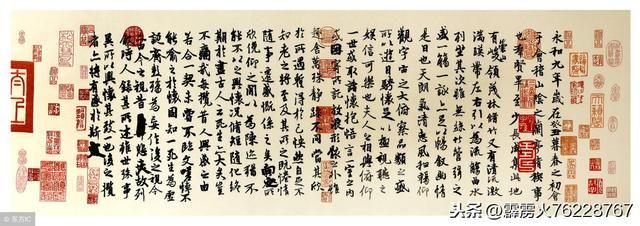 永和九年歲在癸丑暮春之初會
于會稽山陰之蘭亭脩禊事
也群賢畢至少長咸集此地
有崇山峻領茂林脩竹又有清流激
湍暎帶左右引以為流觴曲水
列坐其次雖無絲竹管弦之
盛一觴一詠亦足以暢敘幽情
是日也天朗氣清惠風和暢仰
觀宇宙之大俯察品類之盛
所以遊目騁懷足以極視聽之
娛信可樂也夫人之相與俯仰
一世或取諸懷抱悟言一室之內
或因寄所託放浪形骸之外雖
趣舍萬殊靜躁不同當其欣
於所遇暫得於己快然自足不
知老之將至及其所之既惓情
隨事遷感慨係之矣向之所
欣俛仰之間以為陳迹猶不
能不以之興懷況脩短隨化終
期於盡古人云死生亦大矣豈
不痛哉每攬昔人興感之由
若合一契未嘗不臨文嗟悼不
能喻之於懷固知一死生為虛
誕齊彭殤為妄作後之視今
亦由今之視昔悲夫故列
敘時人錄其所述雖世殊事
異所以興懷其致一也後之攬
者亦將有感於斯文
东方IC
头条@霹雳火76228767